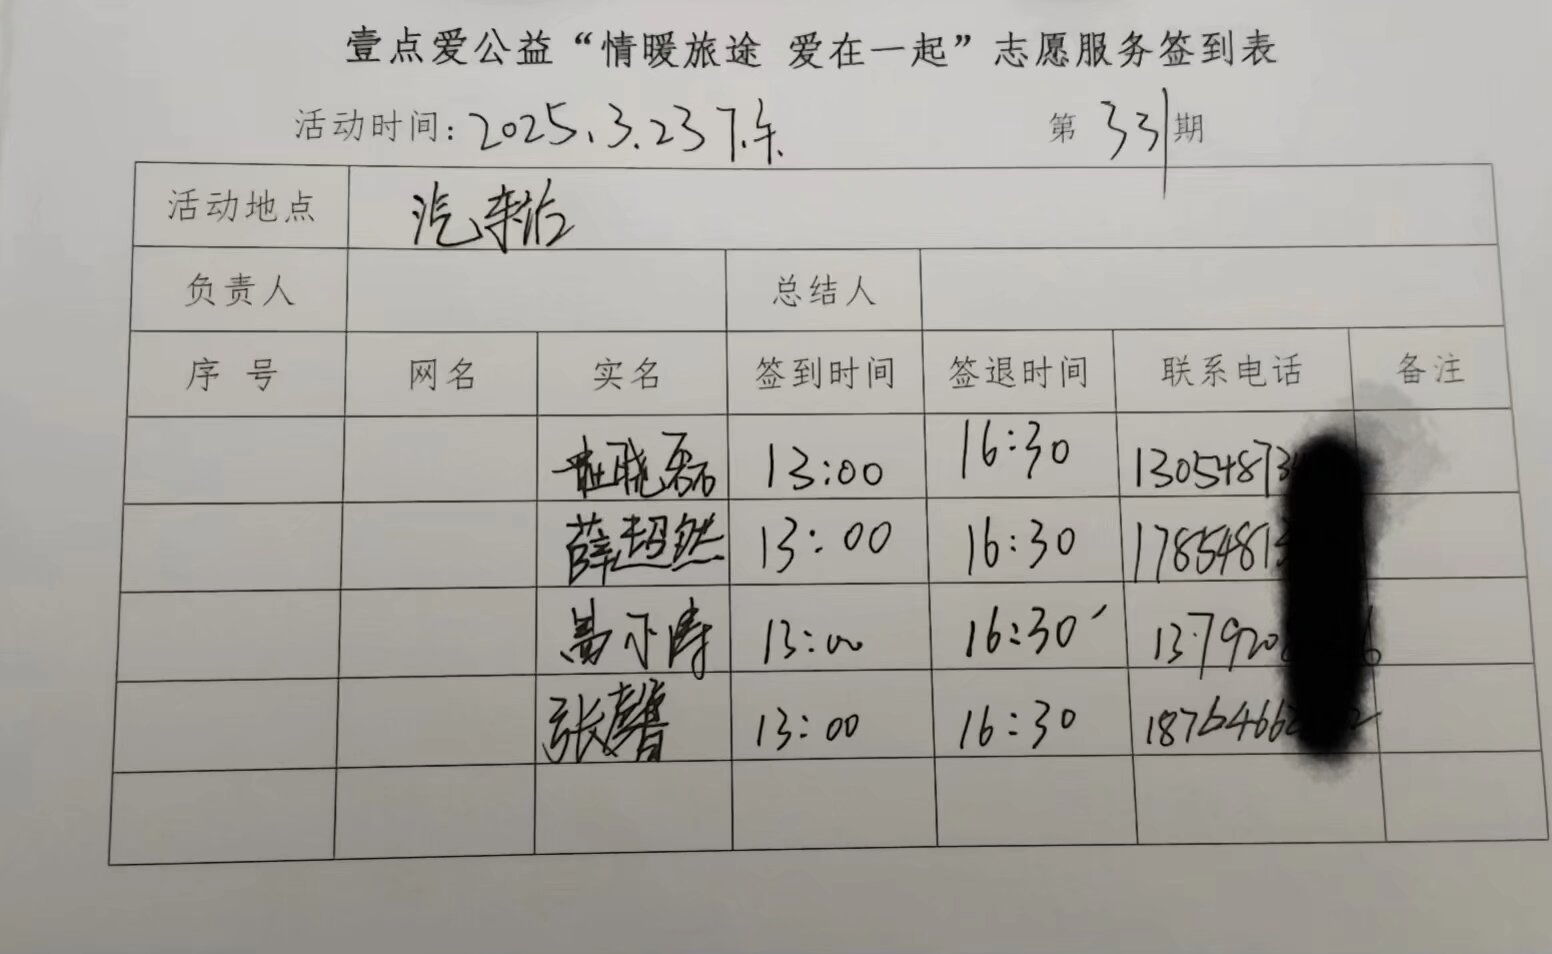 壹点爱公益“情暖旅途 爱在一起”志愿服务签到表
活动时间：2025.3.23下午 第 331 期
活动地点 汽车站
负责人 总结人
序号 网名 实名 签到时间 签退时间 联系电话 备注
晓磊 13:00 16:30 1305487
薛超然 13:00 16:30 1785481
13:00 16:30 137920
张馨 13:00 16:30 1876466